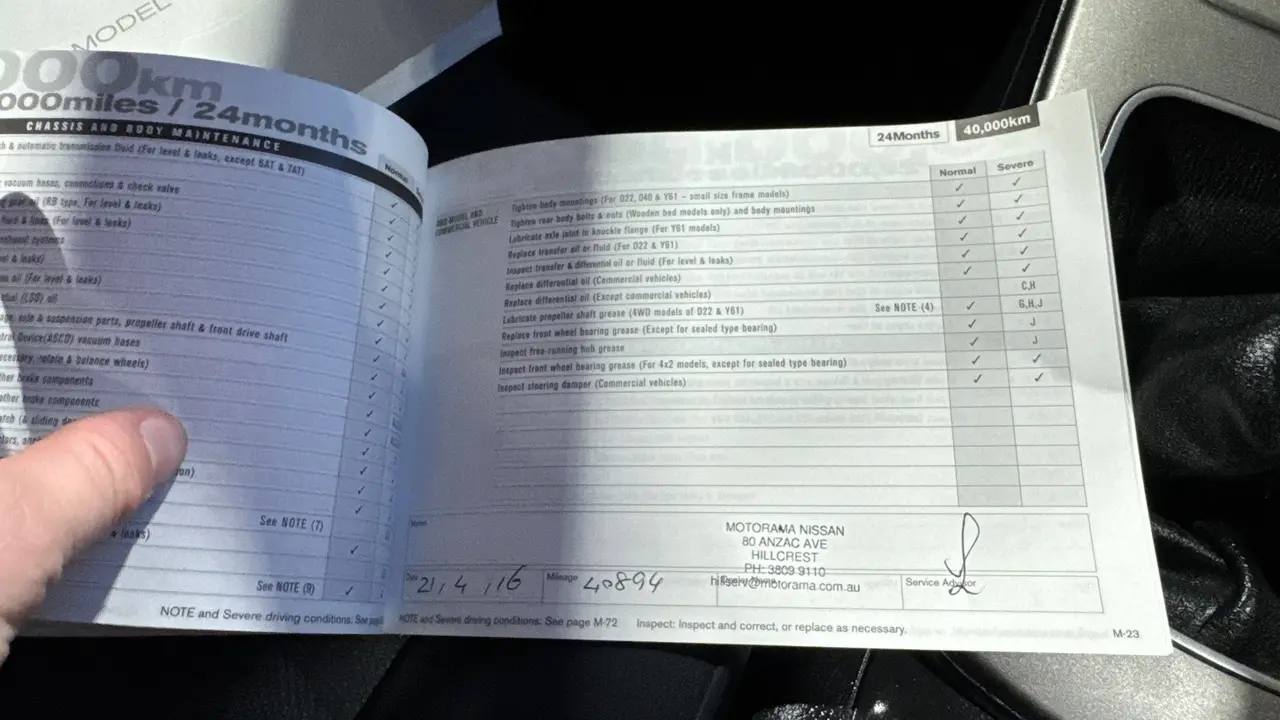 MODEL
000km
000miles / 24months
CHASSIS AND BODY MAINTENANCE
& automatic transmission fluid (For level & leaks, except 5AT & 7AT)
Normal
vacuum hoses, connections & check valve ✓
gear oil (RB type, For level & leaks) ✓
fluid & lines (For level & leaks) ✓
exhaust systems ✓
& leaks) ✓
oil (For level & leaks) ✓
(LSD) oil ✓
axle & suspension parts, propeller shaft & front drive shaft ✓
Device(ASCD) vacuum hoses ✓
necessary, rotate & balance wheels) ✓
other brake components ✓
other brake components ✓
✓
✓
✓
See NOTE (7) ✓
leaks) ✓
See NOTE (9) ✓
NOTE and Severe driving conditions. See
24Months 40,000km
Normal Severe
AND COMMERCIAL VEHICLE
Tighten body mountings (For D22, D40 & Y61 - small size frame models) ✓ ✓
Tighten rear body bolts & nuts (Wooden bed models only) and body mountings ✓ ✓
Lubricate axle joint in knuckle flange (For Y61 models) ✓ ✓
Replace transfer oil or fluid (For D22 & Y61) ✓ ✓
Inspect transfer & differential oil or fluid (For level & leaks) ✓ ✓
Replace differential oil (Commercial vehicles) ✓ ✓
Replace differential oil (Except commercial vehicles) C,H
Lubricate propeller shaft grease (4WD models of D22 & Y61) See NOTE (4) ✓ G,H,J
Replace front wheel bearing grease (Except for sealed type bearing) ✓ J
Inspect free-running hub grease ✓ J
Inspect front wheel bearing grease (For 4x2 models, except for sealed type bearing) ✓ ✓
Inspect steering damper (Commercial vehicles) ✓ ✓
MOTORAMA NISSAN
80 ANZAC AVE
HILLCREST
PH: 3809 9110
hillserv@motorama.com.au
Date 21, 4, 16
Mileage 40894
Service Advisor
NOTE and Severe driving conditions: See page M-72 Inspect: Inspect and correct, or replace as necessary.
M-23